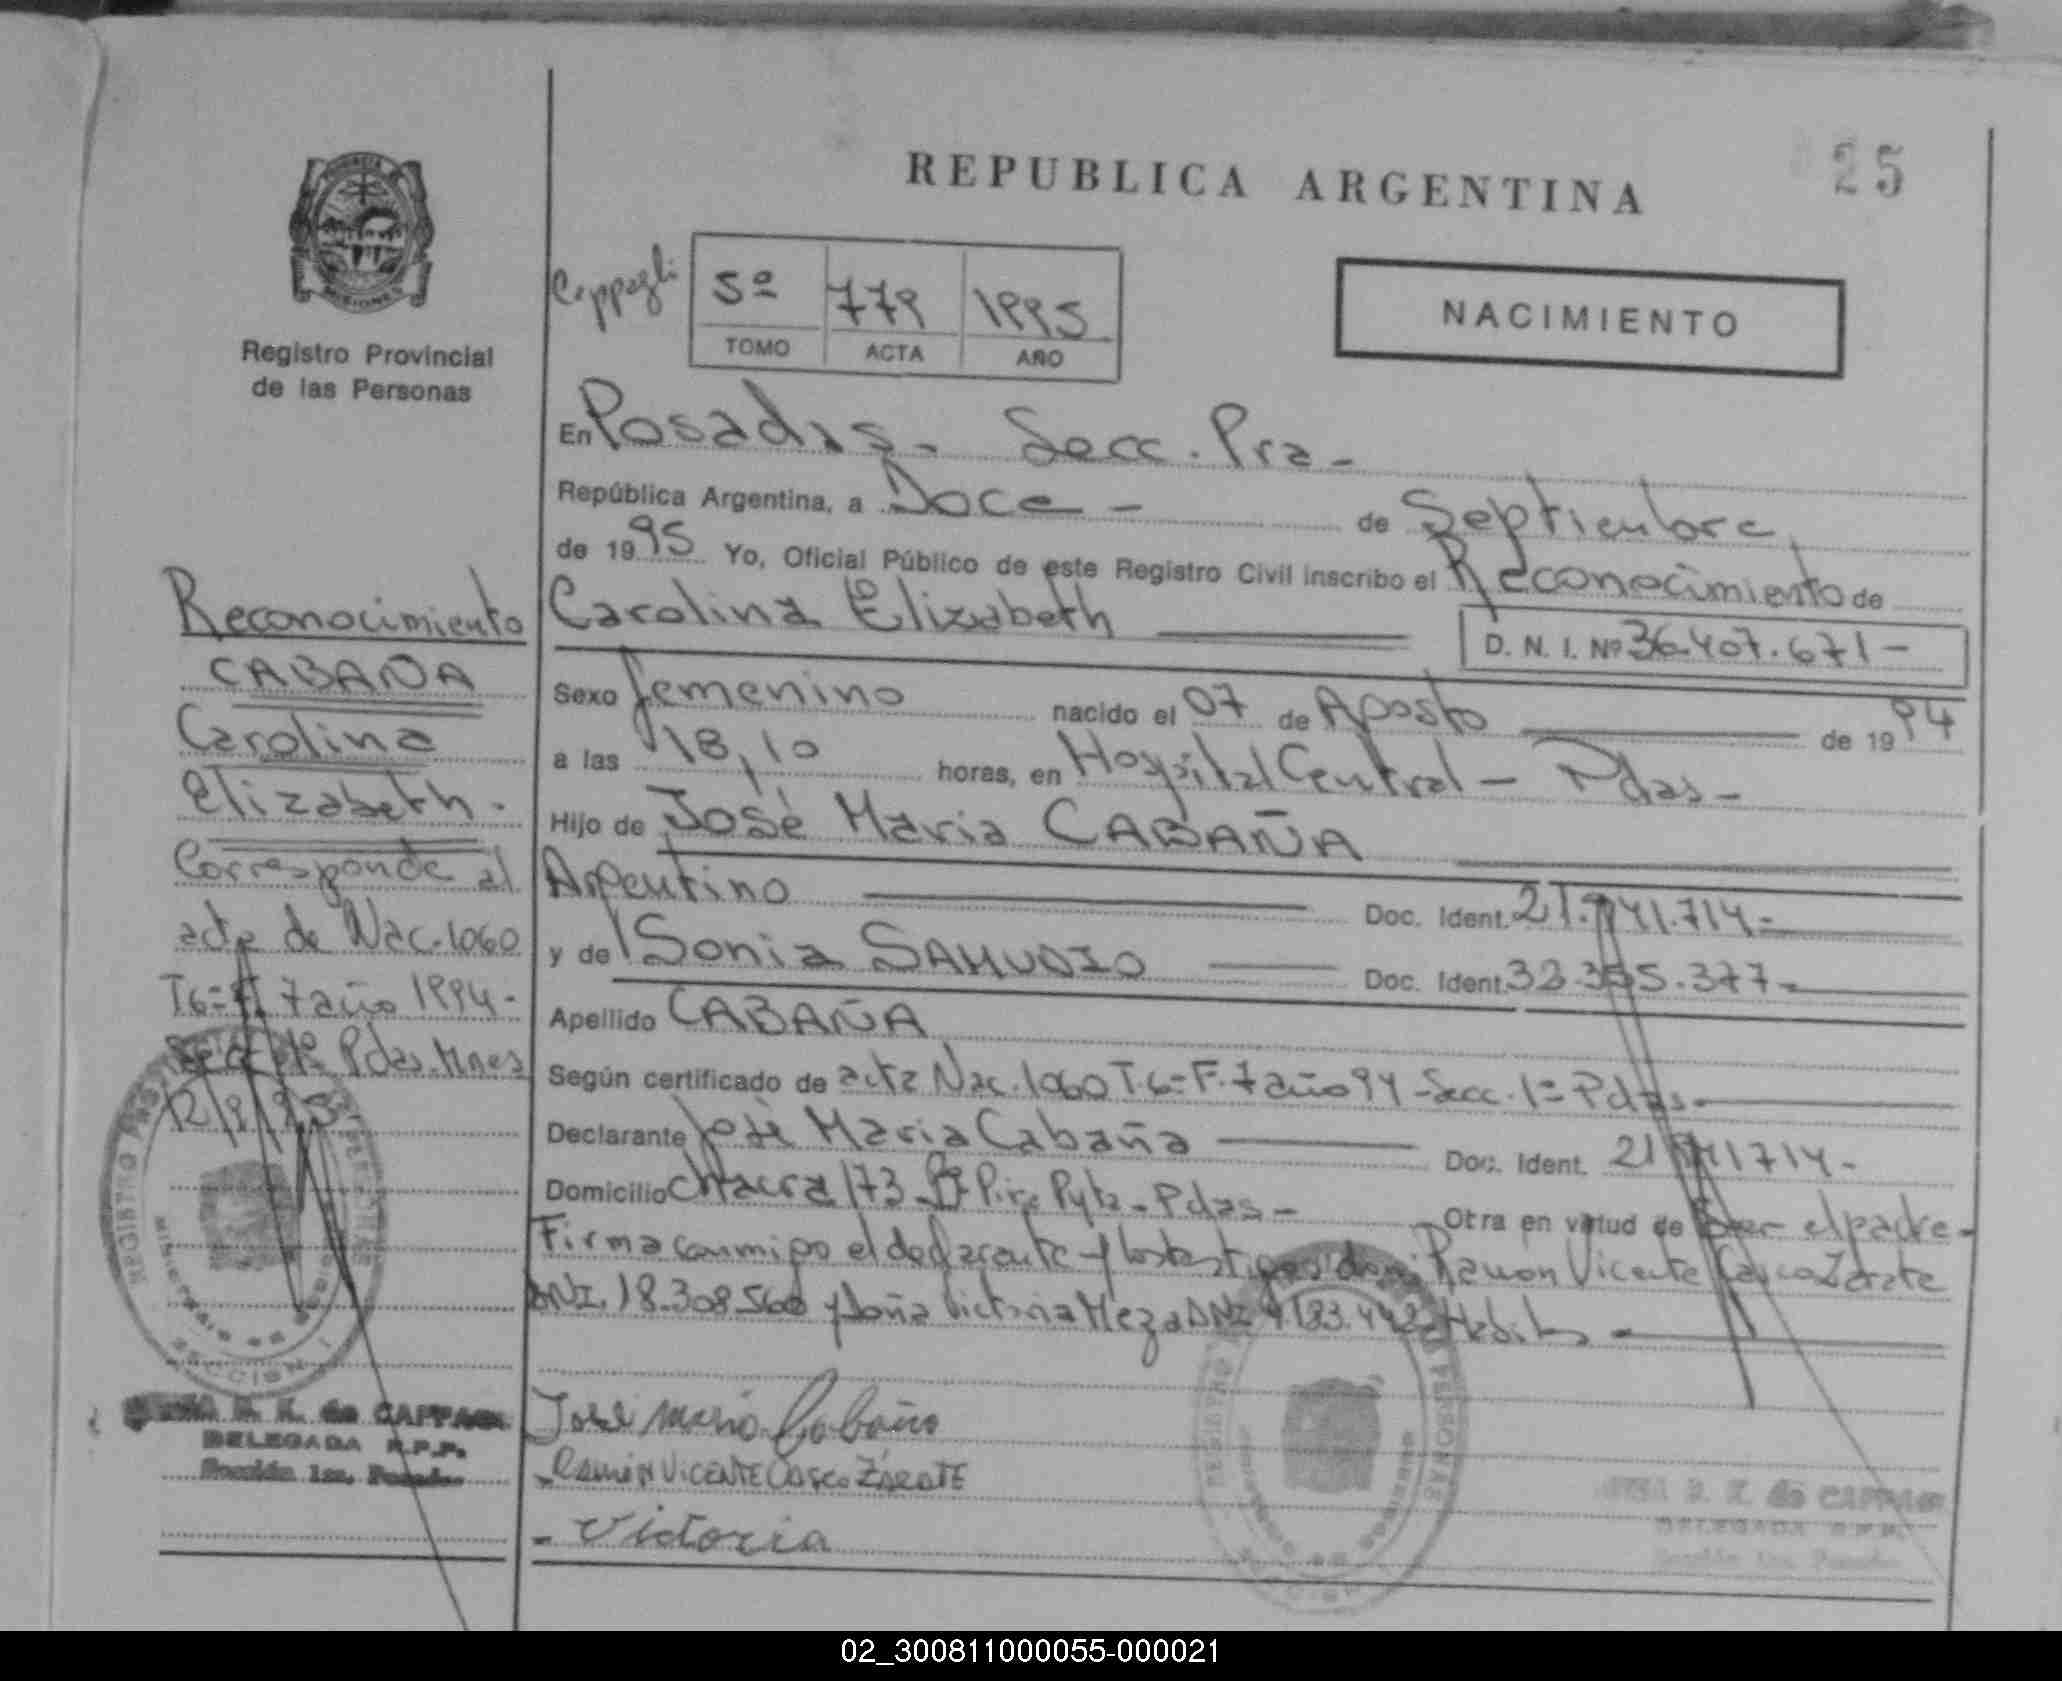 REPUBLICA ARGENTINA
25
MISIONES
Registro Provincial
de las Personas
5º 779 1995
TOMO ACTA AÑO
NACIMIENTO
En Posadas - Secc. 1ra -
República Argentina, a Doce - de Septiembre
de 1995 Yo, Oficial Público de este Registro Civil inscribo el Reconocimiento de
Carolina Elizabeth
D. N. I. Nº 36.407.671 -
Sexo femenino nacido el 07 de Agosto de 1994
a las 18,10 horas, en Hospital Central - Pdas -
Hijo de José Maria CABAÑA
Argentino Doc. Ident. 21. 41.714 -
y de Sonia SAMUDIO Doc. Ident. 33.355.377 -
Apellido CABAÑA
Según certificado de acta Nac. 1060 T. 6º F. 7 año 94 - Secc. 1º Pdas -
Declarante José Maria Cabaña Doc. Ident. 21 41714 -
Domicilio Chacra 173 Pyta - Pdas - Otra en virtud de Ser el padre -
Firma conmigo el declarante y los testigos don Ramón Vicente Casco Zarate
DNI. 18.308.560 y doña Victoria Meza DNI Habiles -
José Maria Cabaña
Ramón VICENTE CASCO ZÁRATE
- Victoria
Reconocimiento
CABAÑA
Carolina
Elizabeth.
Corresponde al
acta de Nac. 1060
T 6º F 7 año 1994 -
Secc. 1º Pdas. Mnes
12/9/95
REGISTRO
SECCION 1
de CAPPAGLI
DELEGADA R.P.P.
Sección 1ra. Posadas
REGISTRO PERSONAS
de CAPPAGLI
DELEGADA R.P.P.
Sección 1ra. Posadas
02_300811000055-000021